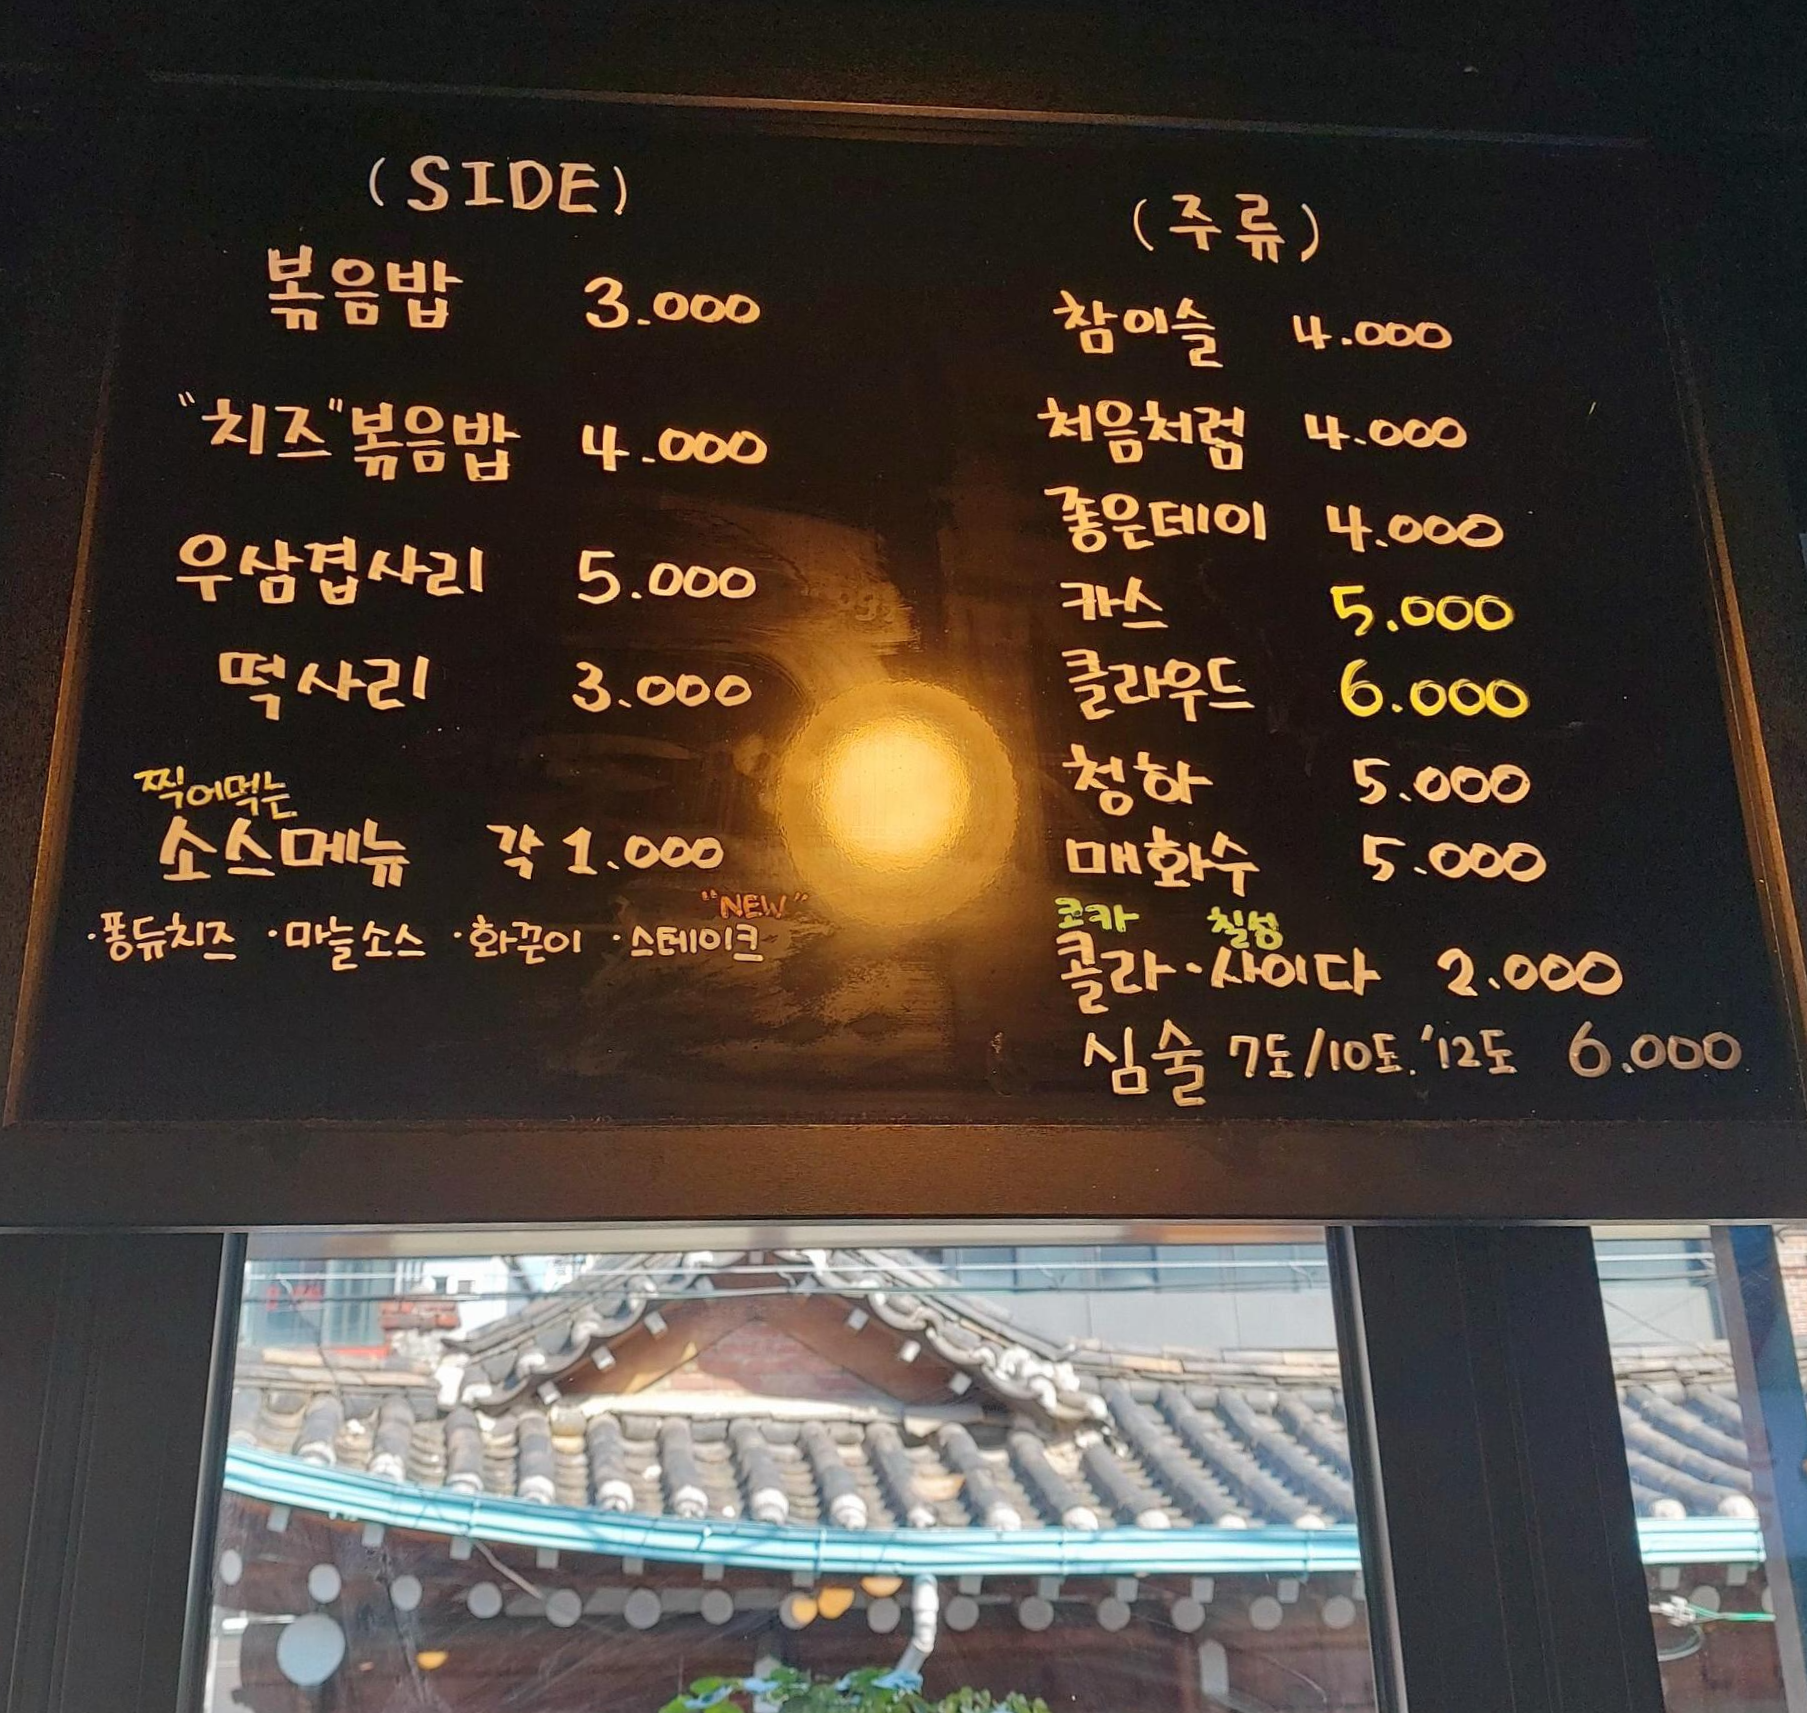 (SIDE)
볶음밥 3.000
"치즈"볶음밥 4.000
우삼겹사리 5.000
떡사리 3.000
찍어먹는
소스메뉴 각 1.000
"NEW"
·퐁듀치즈 ·마늘소스 ·화끈이 ·스테이크
(주류)
참이슬 4.000
처음처럼 4.000
좋은데이 4.000
카스 5.000
클라우드 6.000
청하 5.000
매화수 5.000
코카 칠성
콜라·사이다 2.000
심술 7도/10도.'12도 6.000